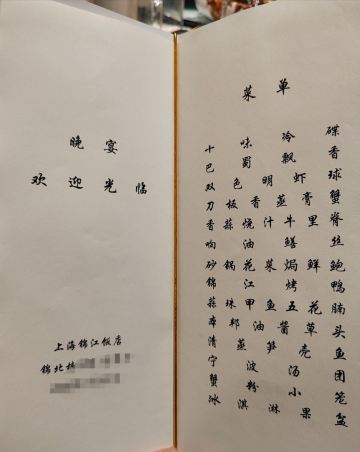 晚宴
欢迎光临
上海锦江饭店
锦北楼
菜单
十味冷碟
巴蜀飘香
双色明虾球
刀板香蒸膏蟹
香蒜烧汁牛里脊
响油鳝丝
砂锅花菜焗鲜鲍
锦江烤鸭
蒜珠甲鱼五花腩
本邦油酱草头
清蒸笋壳鱼
宁波汤团
蟹粉小笼
冰淇淋果盆